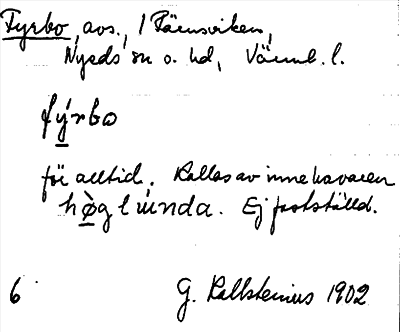 Fyrbo, avs., i Rämsviken,
Nyeds sn o. hd, Värml. l.
fý̱rbo
för alltid. Kallas av innehavaren
hø̱̀glúnda. Ej fastställd.
6 G. Kallstenius 1902